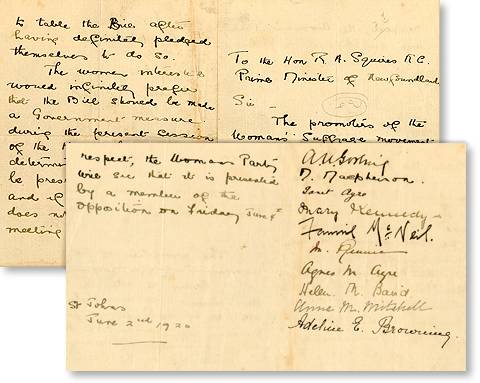 to table the Bill after
having definitely pledged
themselves to do so.
The women interested
would infinitely prefer
that the Bill should be made
a Government measure
during the present Session
of the
determ
be pres
and if
does no
meeting
To the Hon R. A. Squires K.C.
Prime Minister of Newfoundland
Sir –
The promoters of the
Womans' Suffrage movement
respect, the Womans Party
will see that it is presented
by a member of the
Opposition on Friday June 4th
St Johns
June 2nd 1920
A N Gosling
D. Macpherson.
Janet Ayre
Mary Kennedy –
Fannie McNeil.
M. Rennie
Agnes M Ayre
Helen M. Baird
Anna M. Mitchell
Adeline E. Browning.